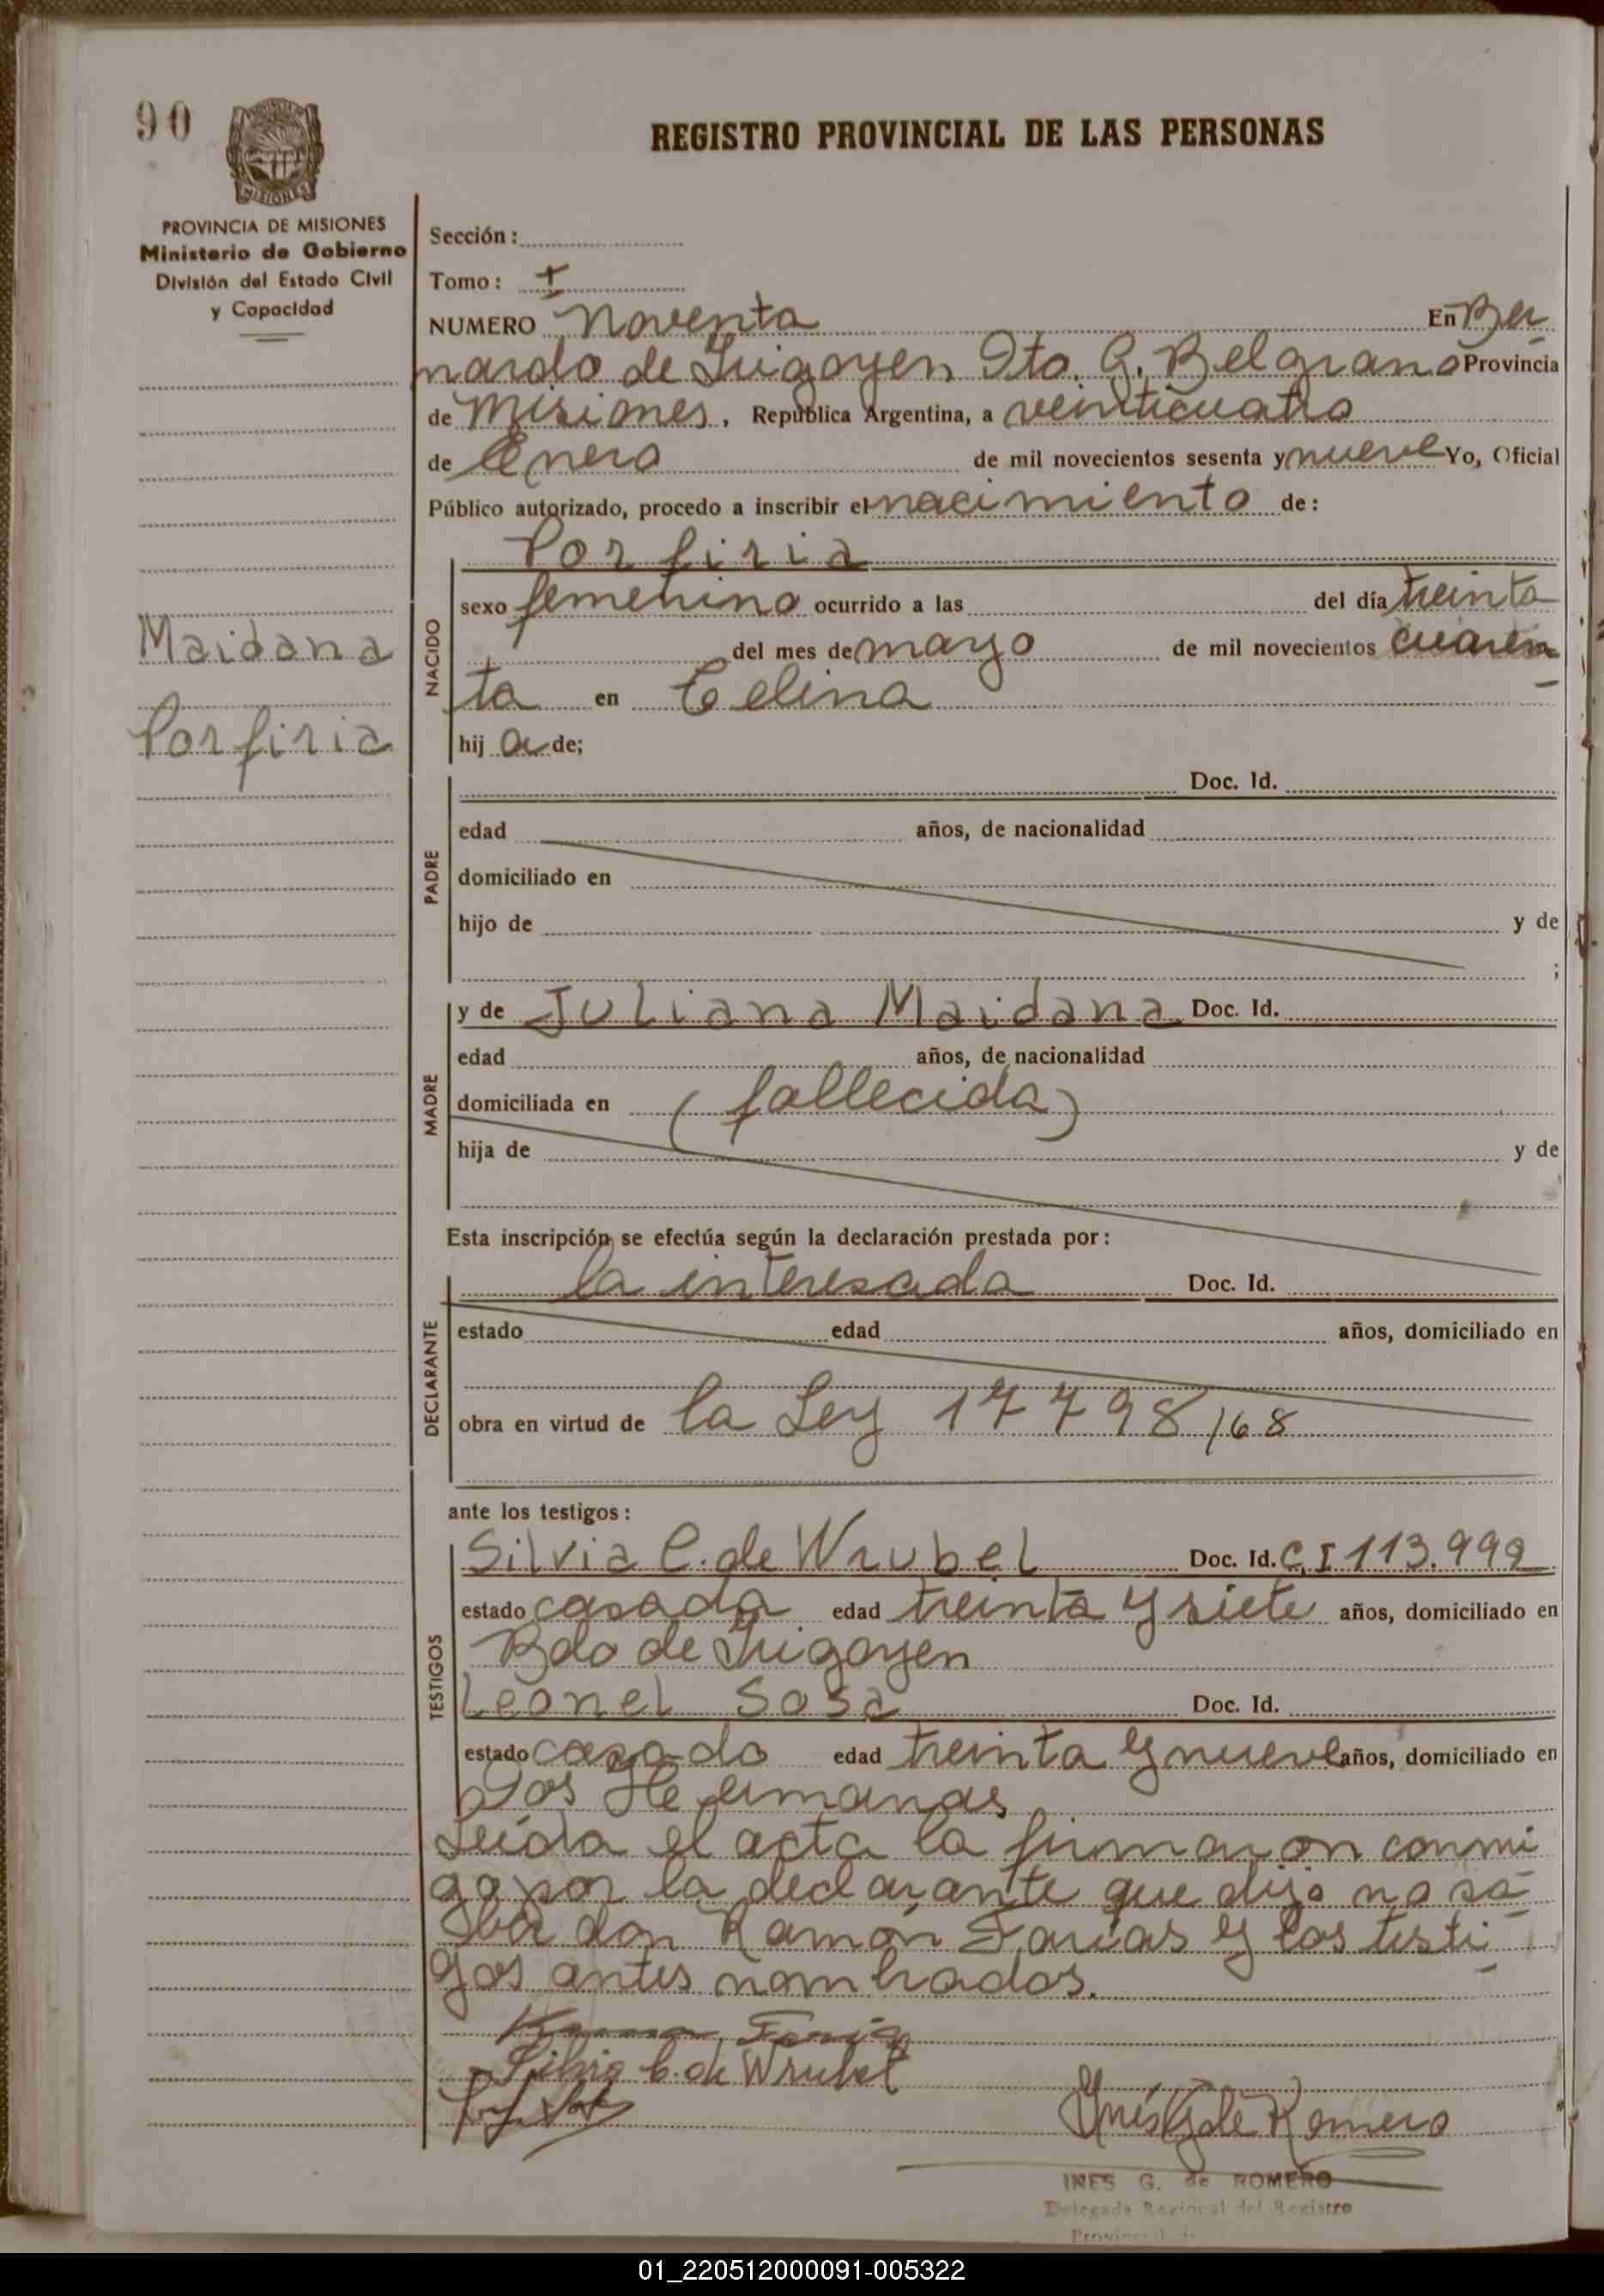 90
REGISTRO PROVINCIAL DE LAS PERSONAS
MISIONES
PROVINCIA DE MISIONES
Ministerio de Gobierno
División del Estado Civil
y Capacidad
Maidana
Porfiria
Sección :
Tomo : I
NUMERO Noventa En Ber
nardo de Irigoyen Dto. G. Belgrano Provincia
de Misiones, República Argentina, a veinticuatro
de Enero de mil novecientos sesenta y nueve Yo, Oficial
Público autorizado, procedo a inscribir el nacimiento de :
NACIDO
Porfiria
sexo femenino ocurrido a las del día treinta
del mes de mayo de mil novecientos cuaren
ta en Celina
hij a de;
PADRE
Doc. Id.
edad años, de nacionalidad
domiciliado en
hijo de y de
;
MADRE
y de Juliana Maidana Doc. Id.
edad años, de nacionalidad
domiciliada en (fallecida)
hija de y de
Esta inscripción se efectúa según la declaración prestada por :
DECLARANTE
la interesada Doc. Id.
estado edad años, domiciliado en
obra en virtud de la Ley 17798/68
ante los testigos :
TESTIGOS
Silvia C. de Wrubel Doc. Id. C.I 113.999
estado casada edad treinta y siete años, domiciliado en
Bdo de Irigoyen
Leonel Sosa Doc. Id.
estado casado edad treinta y nueve años, domiciliado en
Dos Hermanas
Leída el acta la firmaron conmi
go por la declarante que dijo no sa
ber don Ramón Farías y los testi
gos antes nombrados.
Silvia C. de Wrubel
Inés G de Romero
INES G. de ROMERO
Delegada Regional del Registro
01_220512000091-005322